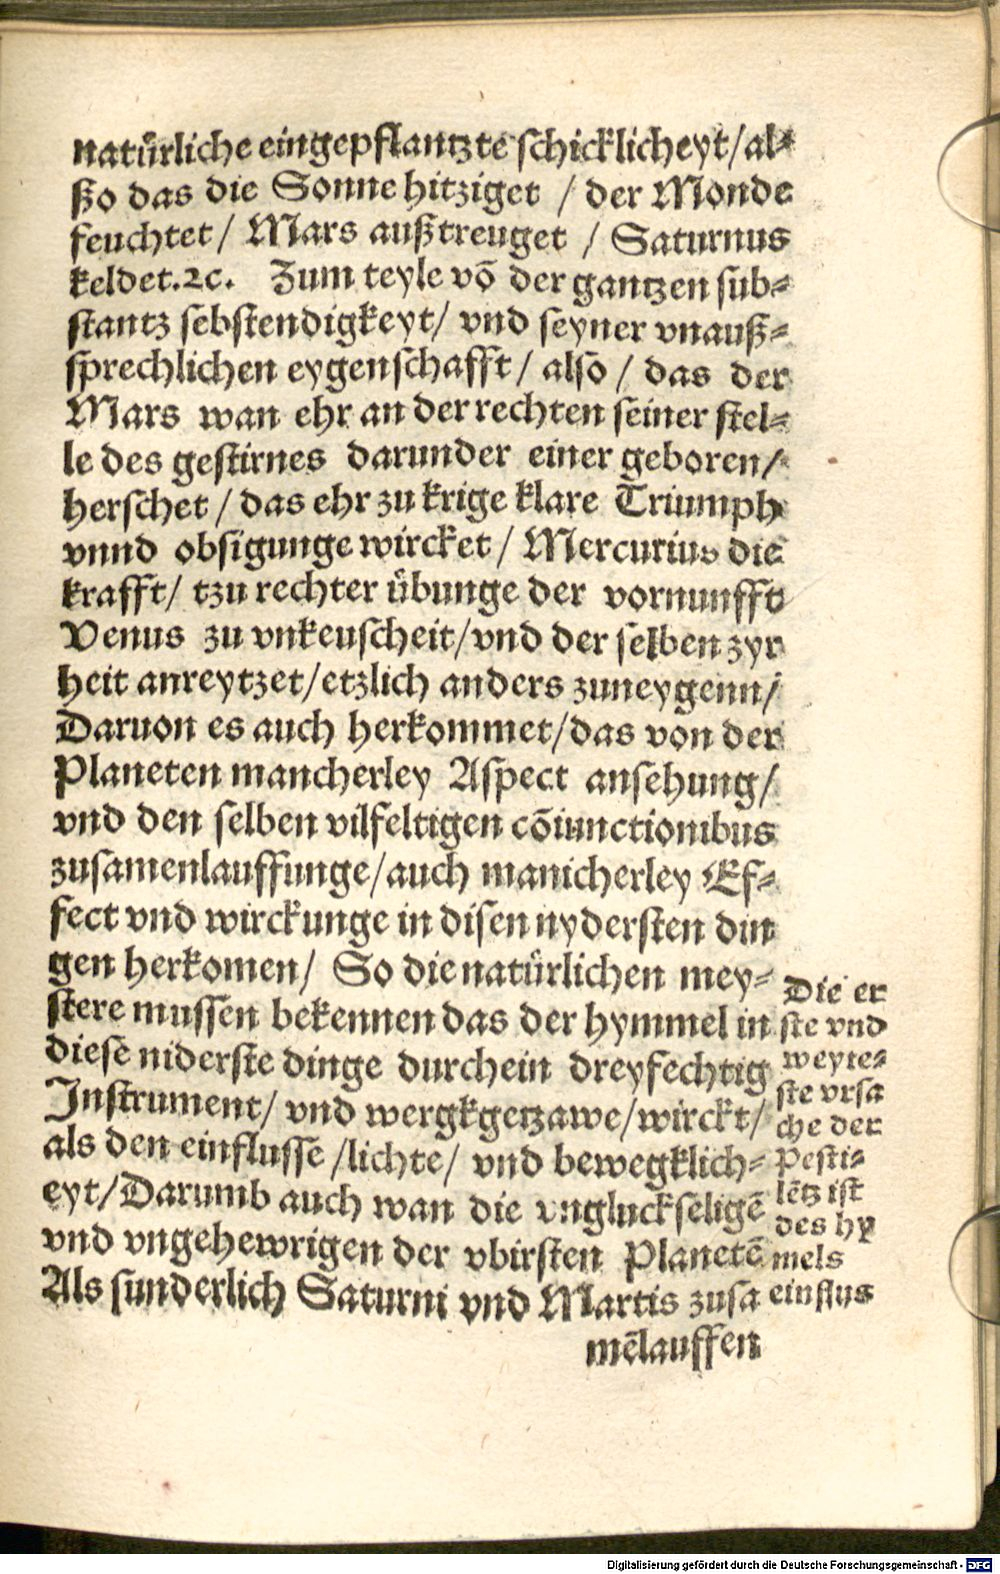 natürliche eingepflantzte schicklicheyt/al⸗
ßo das die Sonne hitziget / der Monde
feuchtet / Mars außtreuget / Saturnus
keldet.ꝛc. Zum teyle võ der gantzen sub⸗
stantz sebstendigkeyt/ vnd seyner vnauß⸗
sprechlichen eygenschafft / also / das der
Mars wan ehr an der rechten seiner stel⸗
le des gestirnes darunder einer geboren/
herschet / das ehr zu krige klare Triumph
vnnd obsigunge wircket / Mercurius die
krafft/ tzu rechter übunge der vornunfft
Venus zu vnkeuscheit/vnd der selben zyr
heit anreytzet/etzlich anders zuneygenn/
Daruon es auch herkommet/das von der
Planeten mancherley Aspect ansehung/
vnd den selben vilfeltigen cõiunctionibus
zusamenlauffunge/auch manicherley Ef⸗
fect vnd wirckunge in disen nydersten din
gen herkomen/ So die natürlichen mey⸗
stere mussen bekennen das der hymmel in
diese niderste dinge durch ein dreyfechtig
Instrument/ vnd wergkgetzawe/wirckt/
als den einflusse /lichte/ vnd bewegklich⸗
eyt/Darumb auch wan die vngluckseligẽ
vnd vngehewrigen der vbirsten Planetẽ
Als sunderlich Saturni vnd Martis zusa
mẽlauffen
Die er
ste vnd
weyte⸗
ste vrsa
che der
Pesti⸗
lẽtz ist
des hy
mels
einflus
Digitalisierung gefördert durch die Deutsche Forschungsgemeinschaft - DFG